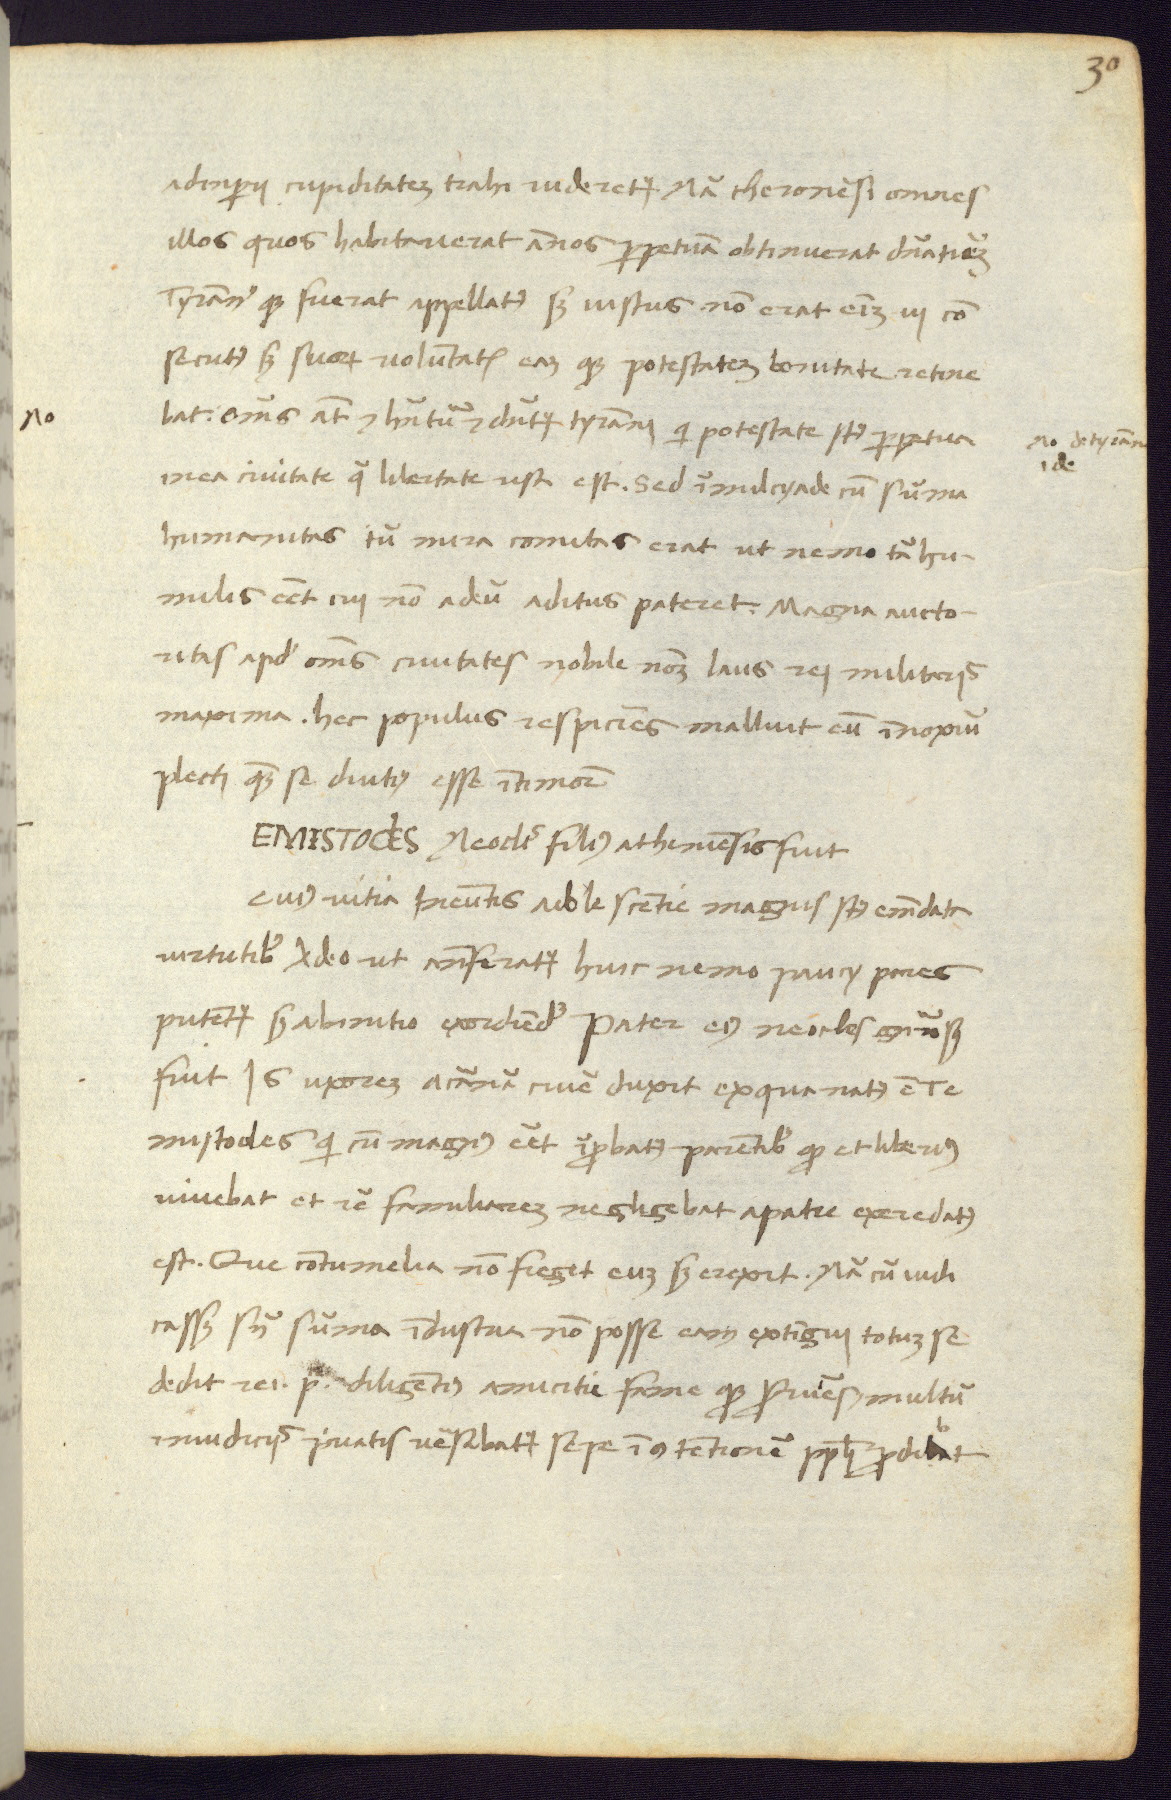 30
adinperii cupiditatem trahi uideretur. Nã cheronẽsi omnes
illos quos habitauerat ãnos perpetuã obtinuerat dñatiõem
Tyrãnus que fuerat appellatus sed iustus nõ erat enim ui cõ
secutus sed suorum volũtate eam que potestatem bonitate retine
bat. Omẽs aũt et hñtur et dicũtur tyrãni qui potestate sunt perpetua
No
No de tyrãn
ide
inea ciuitate que libertate usa est. Sed ĩ milcyade cũ sũma
humanitas tũ mira comitas erat ut nemo tã hu-
milis eẽt cui nõ adeũ aditus pateret. Magna aucto-
ritas apud omẽs ciuitates nobile nomẽ laus rei militaris
maxima. hec populus respiciẽs malluit eũ ĩnoxiũ
plecti quam se diutius esse ĩ timore
EMISTOCLES Neocli filius atheniẽsis fuit
Cuius uitia ineũtis adolescẽtie magnis sunt emẽdata
uirtutibus Adeo ut anteferatur huic nemo pauci pares
putẽtur sed ab initio exordiẽdum Pater eius neocles generosus
fuit Is uxorem acarnanã ciuẽ duxit exqua natus ẽ Te
mistocles qui cũ magis eẽt ĩprobatus parẽtibus quod et liberius
uiuebat et rẽ familiarem negligebat apatre exeredatus
est. Que cõtumelia nõ fregit eum sed erexit. Nã cũ iudi
casset sine sũma ĩdustria nõ posse eam extĩgui totum se
dedit rei. p. diligẽtius amicitie fame que seruiẽs multũ
iniudiciis priuatis uersabatur sepe ĩ contẽtionẽ populi prodibat